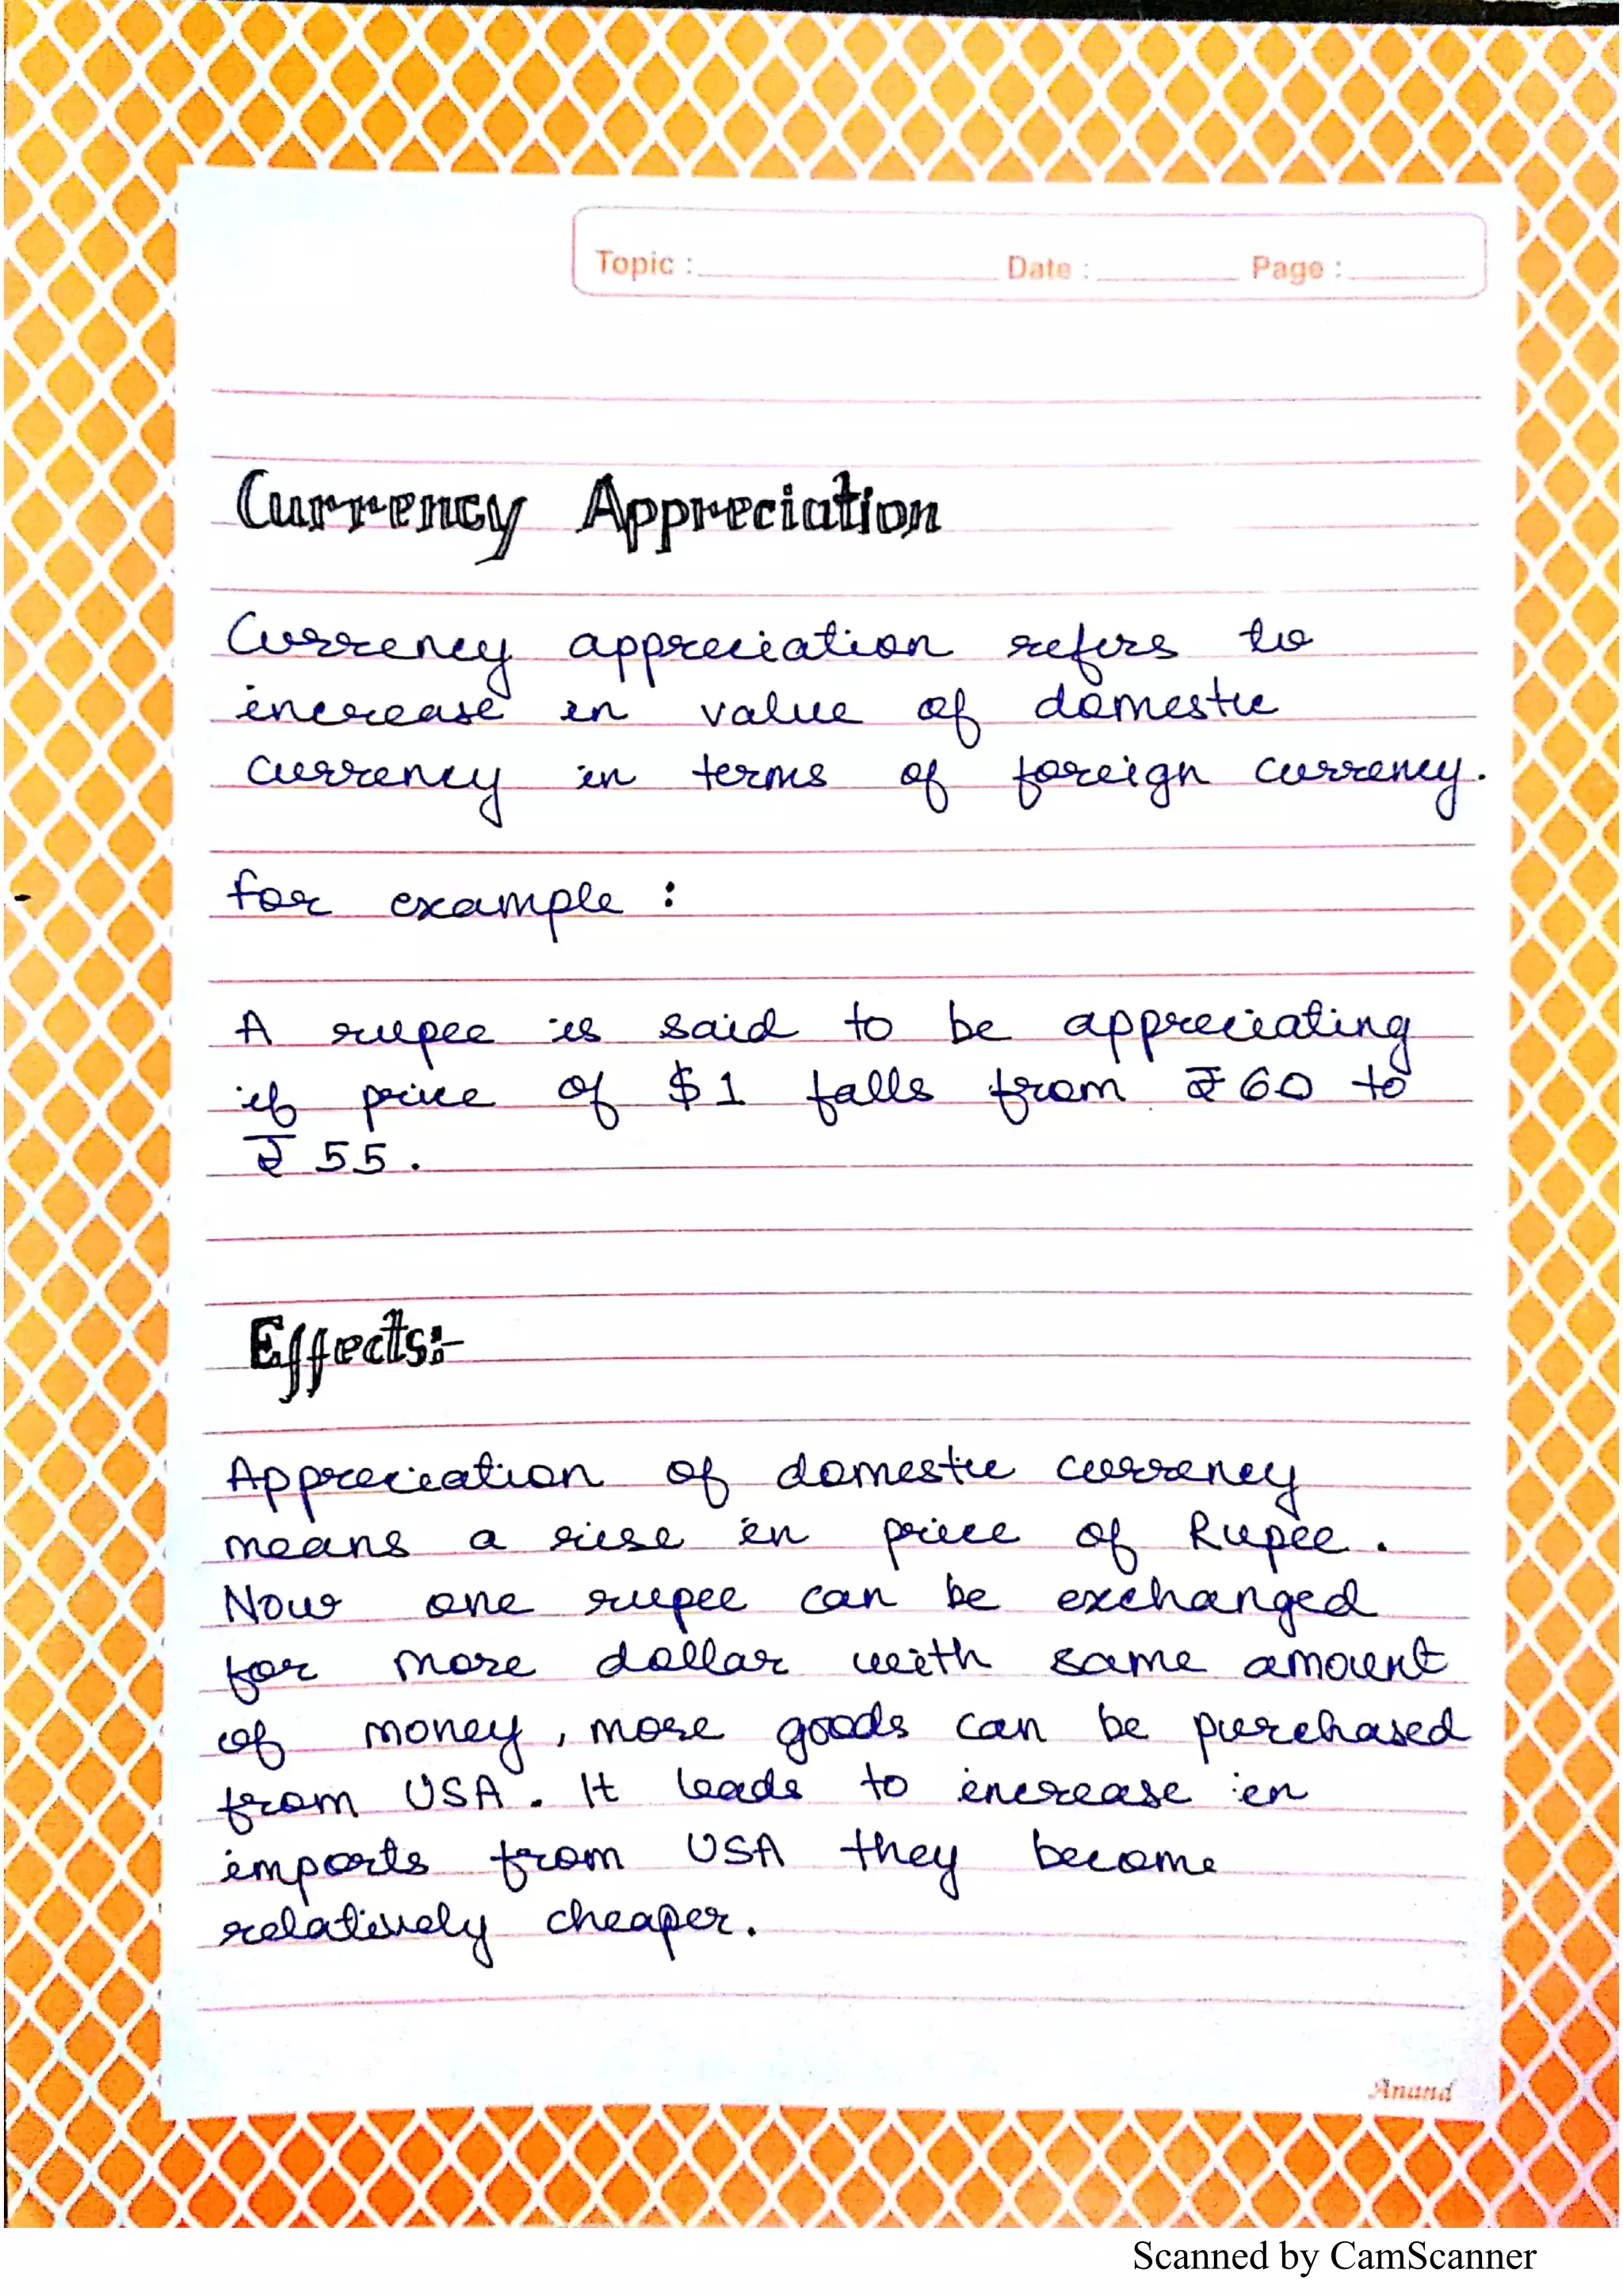 Topic : Date : Page :
Currency Appreciation
Currency appreciation refers to
increase in value of domestic
currency in terms of foreign currency.
for example :
A rupee is said to be appreciating
if price of $1 falls from ₹60 to
₹55.
Effects:-
Appreciation of domestic currency
means a rise in price of Rupee.
Now one rupee can be exchanged
for more dollar with same amount
of money, more goods can be purchased
from USA. It leads to increase in
imports from USA they become
relatively cheaper.
Anand
Scanned by CamScanner